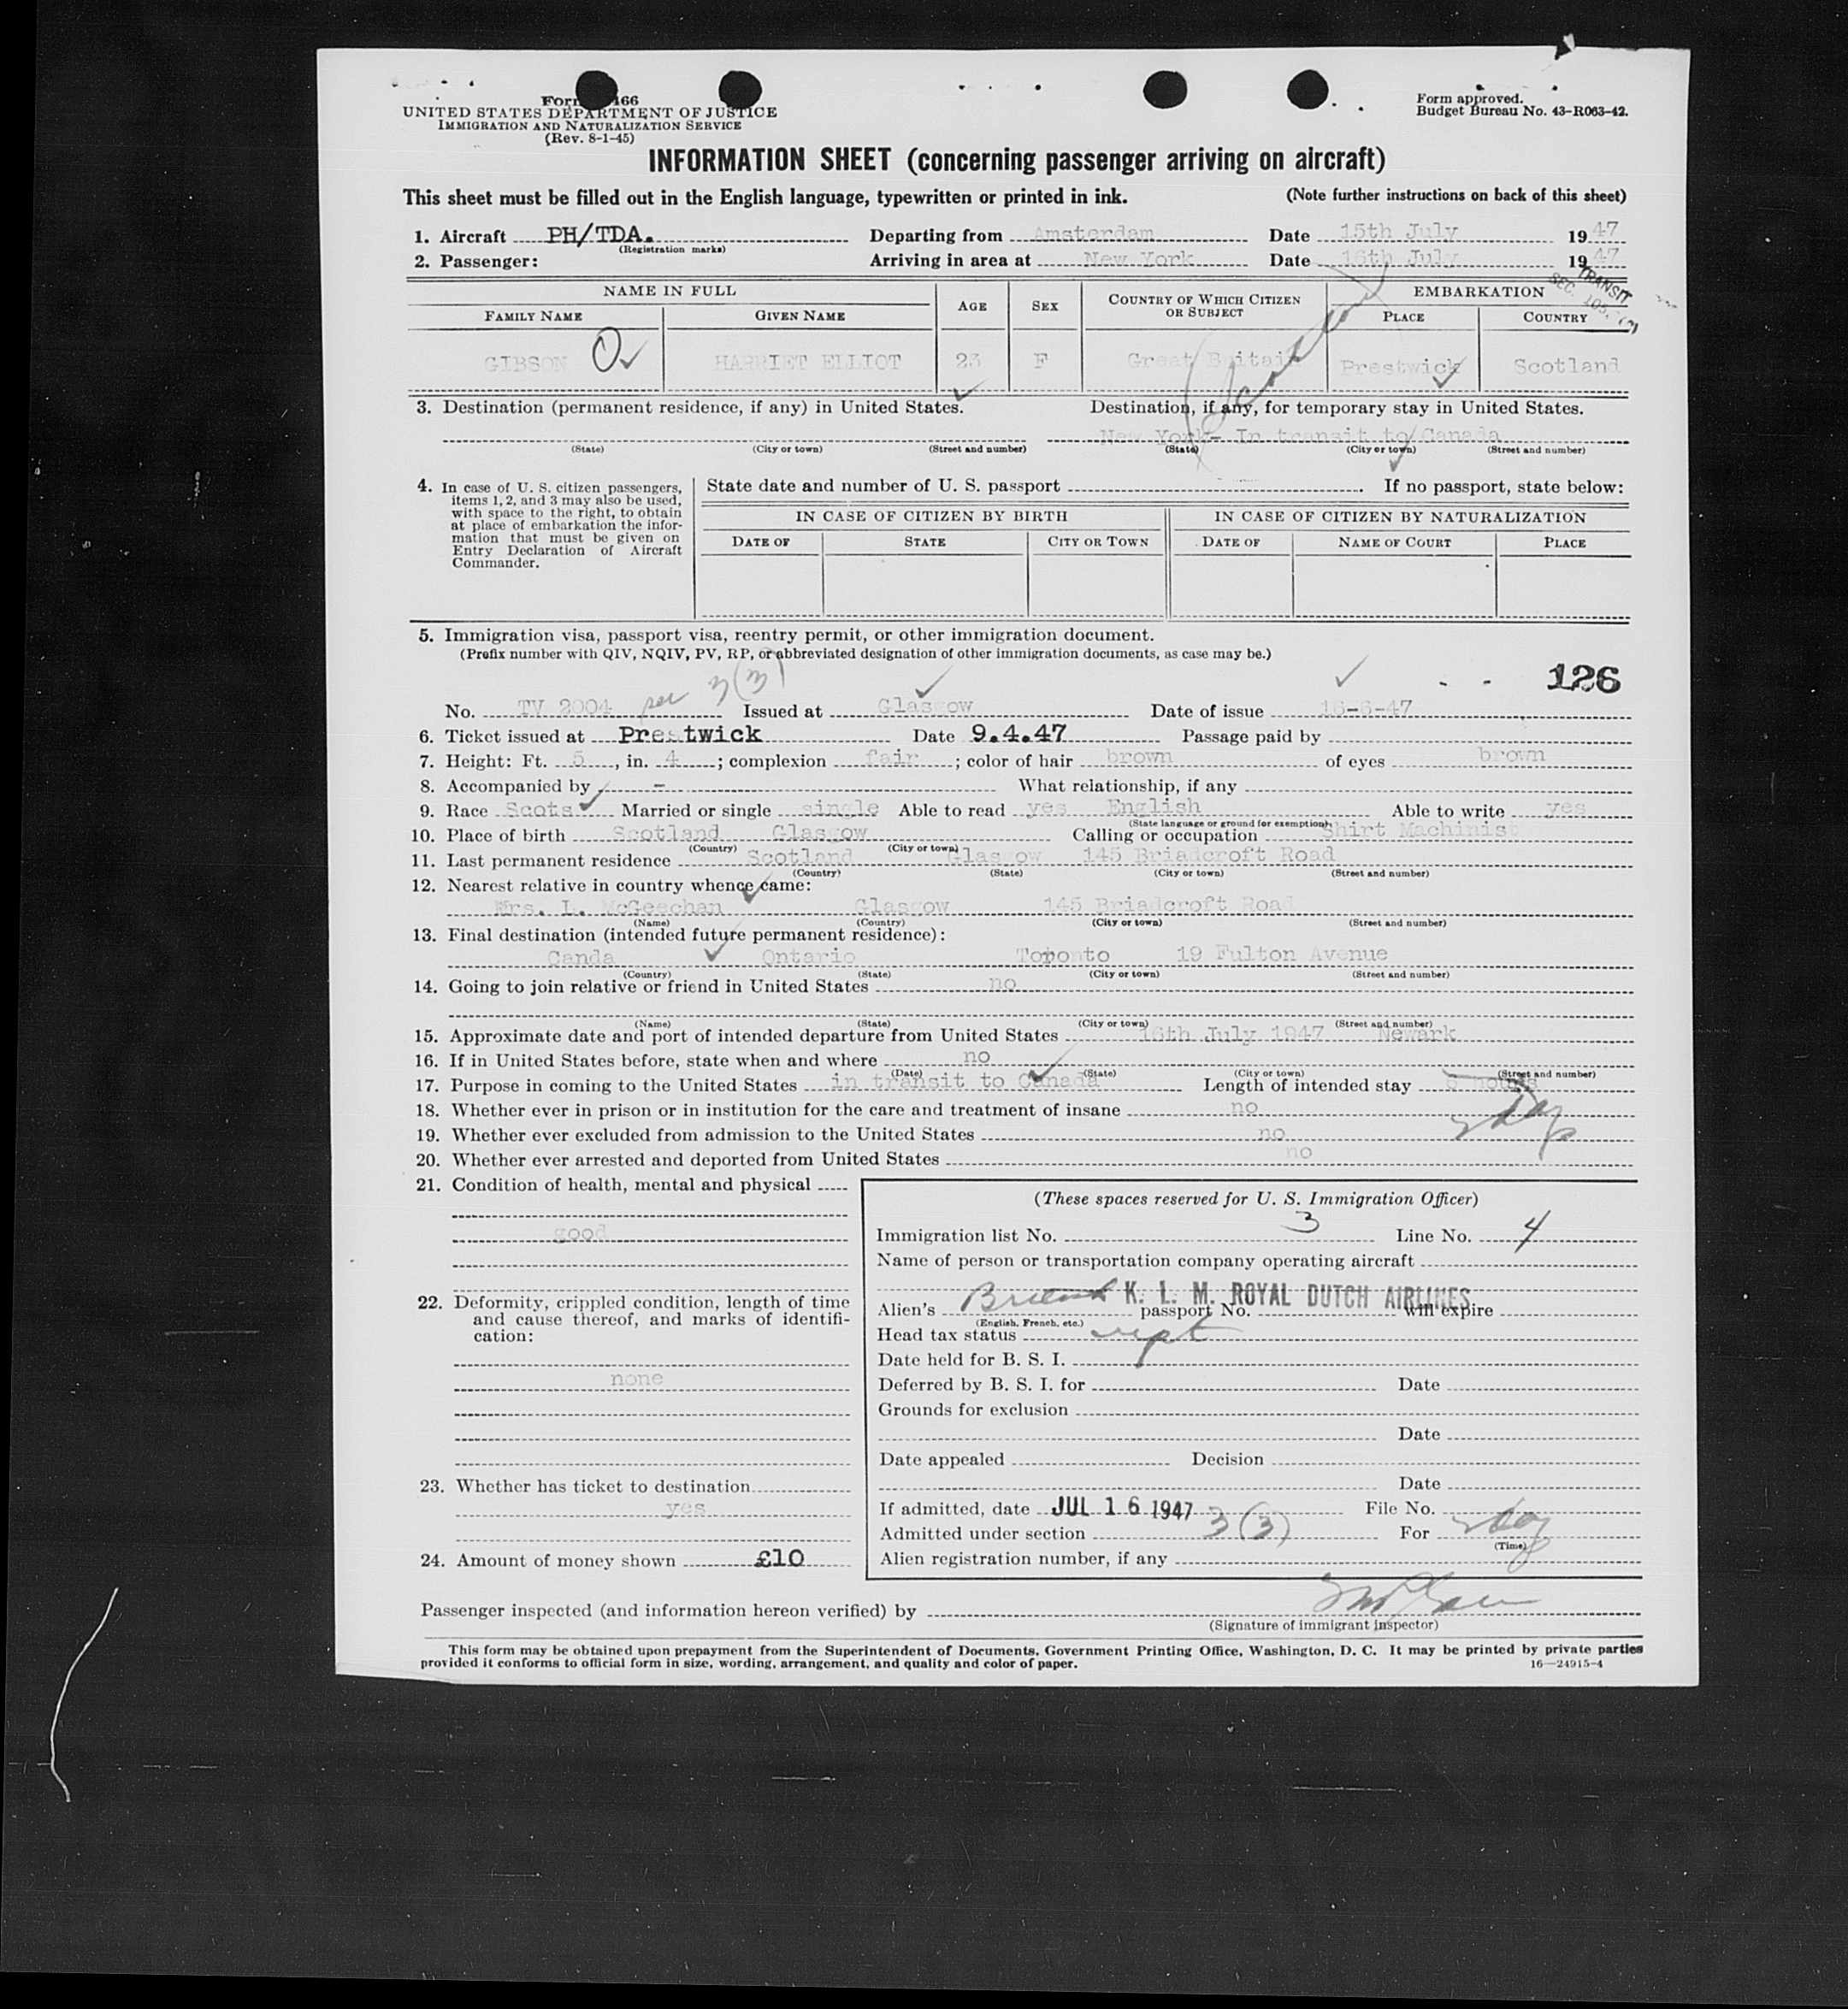 Form 466
UNITED STATES DEPARTMENT OF JUSTICE
IMMIGRATION AND NATURALIZATION SERVICE
(Rev. 8-1-45)
Form approved.
Budget Bureau No. 43-R063-42.
INFORMATION SHEET (concerning passenger arriving on aircraft)
This sheet must be filled out in the English language, typewritten or printed in ink. (Note further instructions on back of this sheet)
1. Aircraft PH/TDA. Departing from Amsterdam Date 15th July 1947
(Registration marks)
2. Passenger: Arriving in area at New York Date 16th July 1947
TRANSIT
SEC. 105.
NAME IN FULL AGE SEX COUNTRY OF WHICH CITIZEN OR SUBJECT EMBARKATION
FAMILY NAME GIVEN NAME PLACE COUNTRY
GIBSON HARRIET ELLIOT 23 F Great Britain Prestwick Scotland
3. Destination (permanent residence, if any) in United States. Destination, if any, for temporary stay in United States.
New York- In transit to Canada
(State) (City or town) (Street and number) (State) (City or town) (Street and number)
4. In case of U. S. citizen passengers,
items 1, 2, and 3 may also be used,
with space to the right, to obtain
at place of embarkation the infor-
mation that must be given on
Entry Declaration of Aircraft
Commander.
State date and number of U. S. passport If no passport, state below:
IN CASE OF CITIZEN BY BIRTH IN CASE OF CITIZEN BY NATURALIZATION
DATE OF STATE CITY OR TOWN DATE OF NAME OF COURT PLACE
5. Immigration visa, passport visa, reentry permit, or other immigration document.
(Prefix number with QIV, NQIV, PV, RP, or abbreviated designation of other immigration documents, as case may be.)
126
No. TV 2004 per 3(3) Issued at Glasgow Date of issue 16-6-47
6. Ticket issued at Prestwick Date 9.4.47 Passage paid by
7. Height: Ft. 5, in. 4; complexion fair; color of hair brown of eyes brown
8. Accompanied by - What relationship, if any
9. Race Scots Married or single single Able to read yes English Able to write yes
(State language or ground for exemption)
10. Place of birth Scotland Glasgow Calling or occupation Shirt Machinist
(Country) (City or town)
11. Last permanent residence Scotland Glasgow 145 Briadcroft Road
(Country) (State) (City or town) (Street and number)
12. Nearest relative in country whence came:
Mrs. L. McGeechan Glasgow 145 Briadcroft Road
(Name) (Country) (City or town) (Street and number)
13. Final destination (intended future permanent residence):
Canda Ontario Toronto 19 Fulton Avenue
(Country) (State) (City or town) (Street and number)
14. Going to join relative or friend in United States no
(Name) (State) (City or town) (Street and number)
15. Approximate date and port of intended departure from United States 16th July 1947 Newark
16. If in United States before, state when and where no
(Date) (State) (City or town) (Street and number)
17. Purpose in coming to the United States in transit to Canada Length of intended stay hours
18. Whether ever in prison or in institution for the care and treatment of insane no
19. Whether ever excluded from admission to the United States no
20. Whether ever arrested and deported from United States no
21. Condition of health, mental and physical
good
22. Deformity, crippled condition, length of time
and cause thereof, and marks of identifi-
cation:
none
23. Whether has ticket to destination
yes
24. Amount of money shown £10
(These spaces reserved for U. S. Immigration Officer)
Immigration list No. 3 Line No. 4
Name of person or transportation company operating aircraft
K. L. M. ROYAL DUTCH AIRLINES
Alien's passport No. will expire
(English, French, etc.)
Head tax status
Date held for B. S. I.
Deferred by B. S. I. for Date
Grounds for exclusion
Date
Date appealed Decision
Date
If admitted, date JUL 16 1947 File No.
Admitted under section 3(3) For
(Time)
Alien registration number, if any
Passenger inspected (and information hereon verified) by
(Signature of immigrant inspector)
This form may be obtained upon prepayment from the Superintendent of Documents, Government Printing Office, Washington, D. C. It may be printed by private parties
provided it conforms to official form in size, wording, arrangement, and quality and color of paper.
16—24915-4